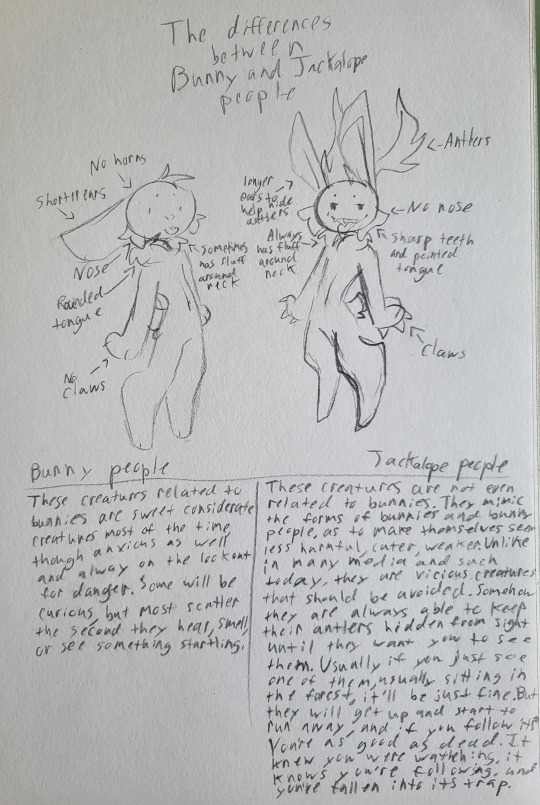 The differences
between
Bunny and Jackalope
people
No horns
Shorter ears
Nose
Rounded
tongue
No
claws
sometimes
has fluff
around
neck
longer
ears to
help hide
antlers
Always
has fluff
around
neck
Antlers
No nose
sharp teeth
and pointed
tongue
claws
Bunny people
These creatures related to
bunnies are sweet considerate
creatures most of the time,
though anxious as well
and alway on the lookout
for danger. Some will be
curious, but most scatter
the second they hear, smell,
or see something startling.
Jackalope people
These creatures are not even
related to bunnies. They mimic
the forms of bunnies and bunny
people, as to make themselves seem
less harmful, cuter, weaker. Unlike
in many media and such
today, they are vicious creatures
that should be avoided. Somehow
they are always able to keep
their antlers hidden from sight
until they want you to see
them. Usually if you just see
one of them, usually sitting in
the forest, it'll be just fine. But
they will get up and start to
run away, and if you follow it
You're as good as dead. It
knew you were watching, it
knows you're following, and
you've fallen into its trap.